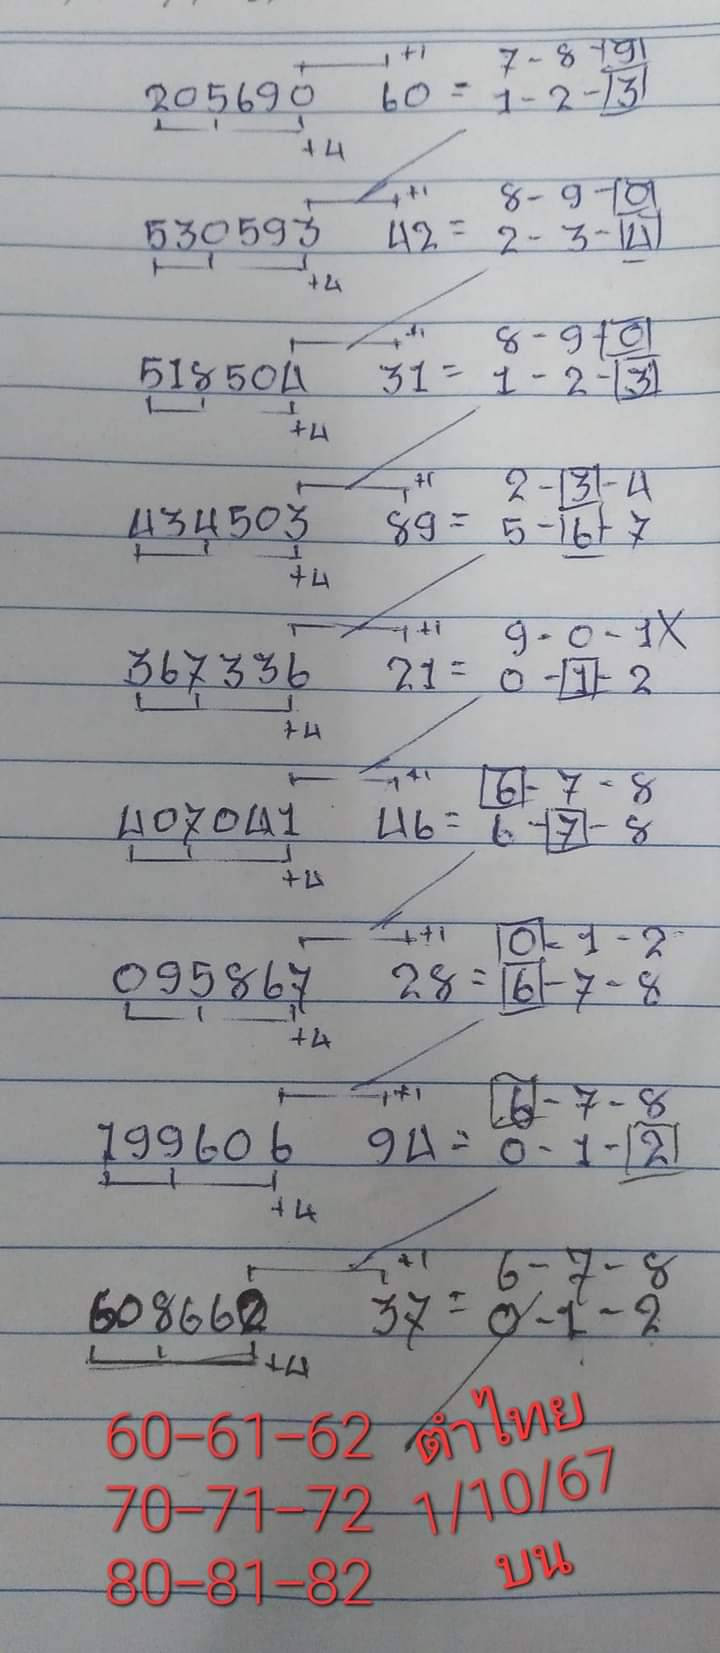 +1 7-8-9
205690 60 = 1-2-3
+4
+1 8-9-0
530593 42 = 2-3-4
+4
+1 8-9-0
518504 31 = 1-2-3
+4
+1 2-3-4
434503 89 = 5-6-7
+4
+1 9-0-1X
367336 21 = 0-1-2
+4
+1 6-7-8
407041 46 = 6-7-8
+4
+1 0-1-2
095867 28 = 6-7-8
+4
+1 6-7-8
199606 94 = 0-1-2
+4
+1 6-7-8
608662 37 = 0-1-2
+4
60-61-62 ตำไทย
70-71-72 1/10/67
80-81-82 บน